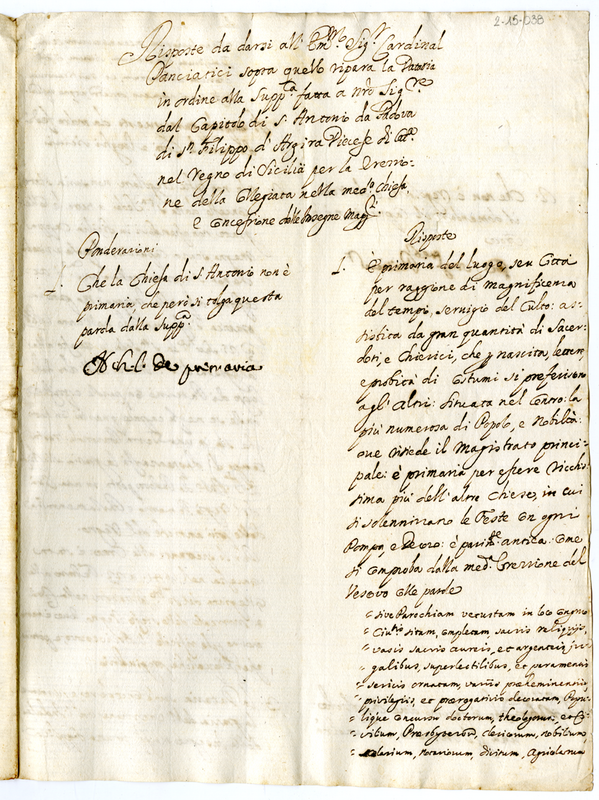 2-15-038
Risposte da darsi all' Em.mo Sig.r Cardinal
Panciatici sopra quello ripara la Dataria
in ordine alla Supp.ca fatta a Nro Sig.re
dal Capitolo di S. Antonio da Padova
di S. Filippo d'Argira Diocese di Cat.
nel Regno di Sicilia per la Erezzio-
ne della Collegiata nella med.a Chiesa,
e concessione delle Insegne Magg.ri
Ponderazioni
1. Che la Chiesa di S. Antonio non è
primaria, che però si tolga questa
parola dalla Supp.ca
de primaria
Risposte
1. È primaria del luogo, seu Città
per raggione di magnificenza
del tempio, servigio del Culto: as-
sistita da gran quantità di Sacer-
doti, e Chierici, che p nascita, lettere,
e probità di costumi si preferiscono
agl'Altri: situata nel Centro: la
più numerosa di Popolo, e Nobiltà:
ove risiede il Magistrato princi-
pale: è primaria per essere ricchis-
sima più dell'altre Chiese, in cui
si solennizzano le Feste con ogni
Pompa, e Decoro: è antica: come
si comproba dalla med. Erezzione del
Vescovo colle parole
= sive Parochiam vetustam in loco congruo
= sitam, completam sacris reliquijs,
= vasis sacris aureis, et argenteis fru-
= galibus, superlectilibus, et paramentis
= sericis ornatam, varijs praeeminentijs,
= privilegijs, et praerogativis decoratam, Popu-
= lique doctorum, theologorum, et Ci-
= vilium, Presbyterorum, clericorum, nobilium
= notariorum, divitum, Agricolarum